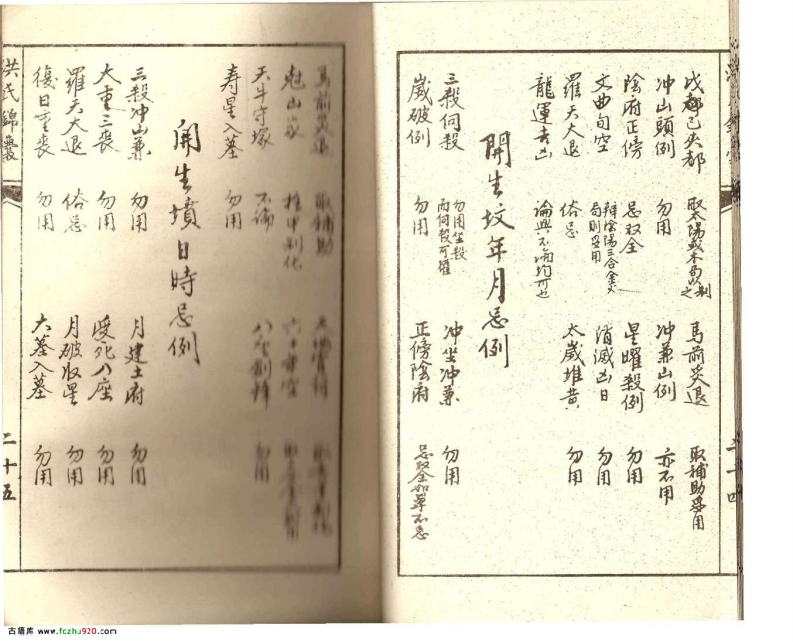 戊都己夹都 取太陽或木局以制之 馬前炙退 取補助要用
冲山頭例 勿用 冲兼山例 亦不用
陰府正傍 忌双全 星曜殺例 勿用
文曲旬空 消滅凶日 勿用
羅天大退 俗忌 太歲堆黄 勿用
龍運吉凶
開生坟年月忌例
三殺伺殺 勿用坐殺而伺殺可權 冲坐冲兼 勿用
歲破例 勿用 正傍陰府 忌双全如單不忌
馬前炙退 取補助
尅山家
天牛守塚 不論 勿用
寿星入墓 勿用
開生墳日時忌例
三殺冲山兼 勿用 月建土府 勿用
大重三喪 勿用 受死八座 勿用
羅天大退 俗忌 月破收星 勿用
復日重喪 勿用 大墓入墓 勿用
洪氏錦囊
二十五
古籍库 www.fczhu920.com